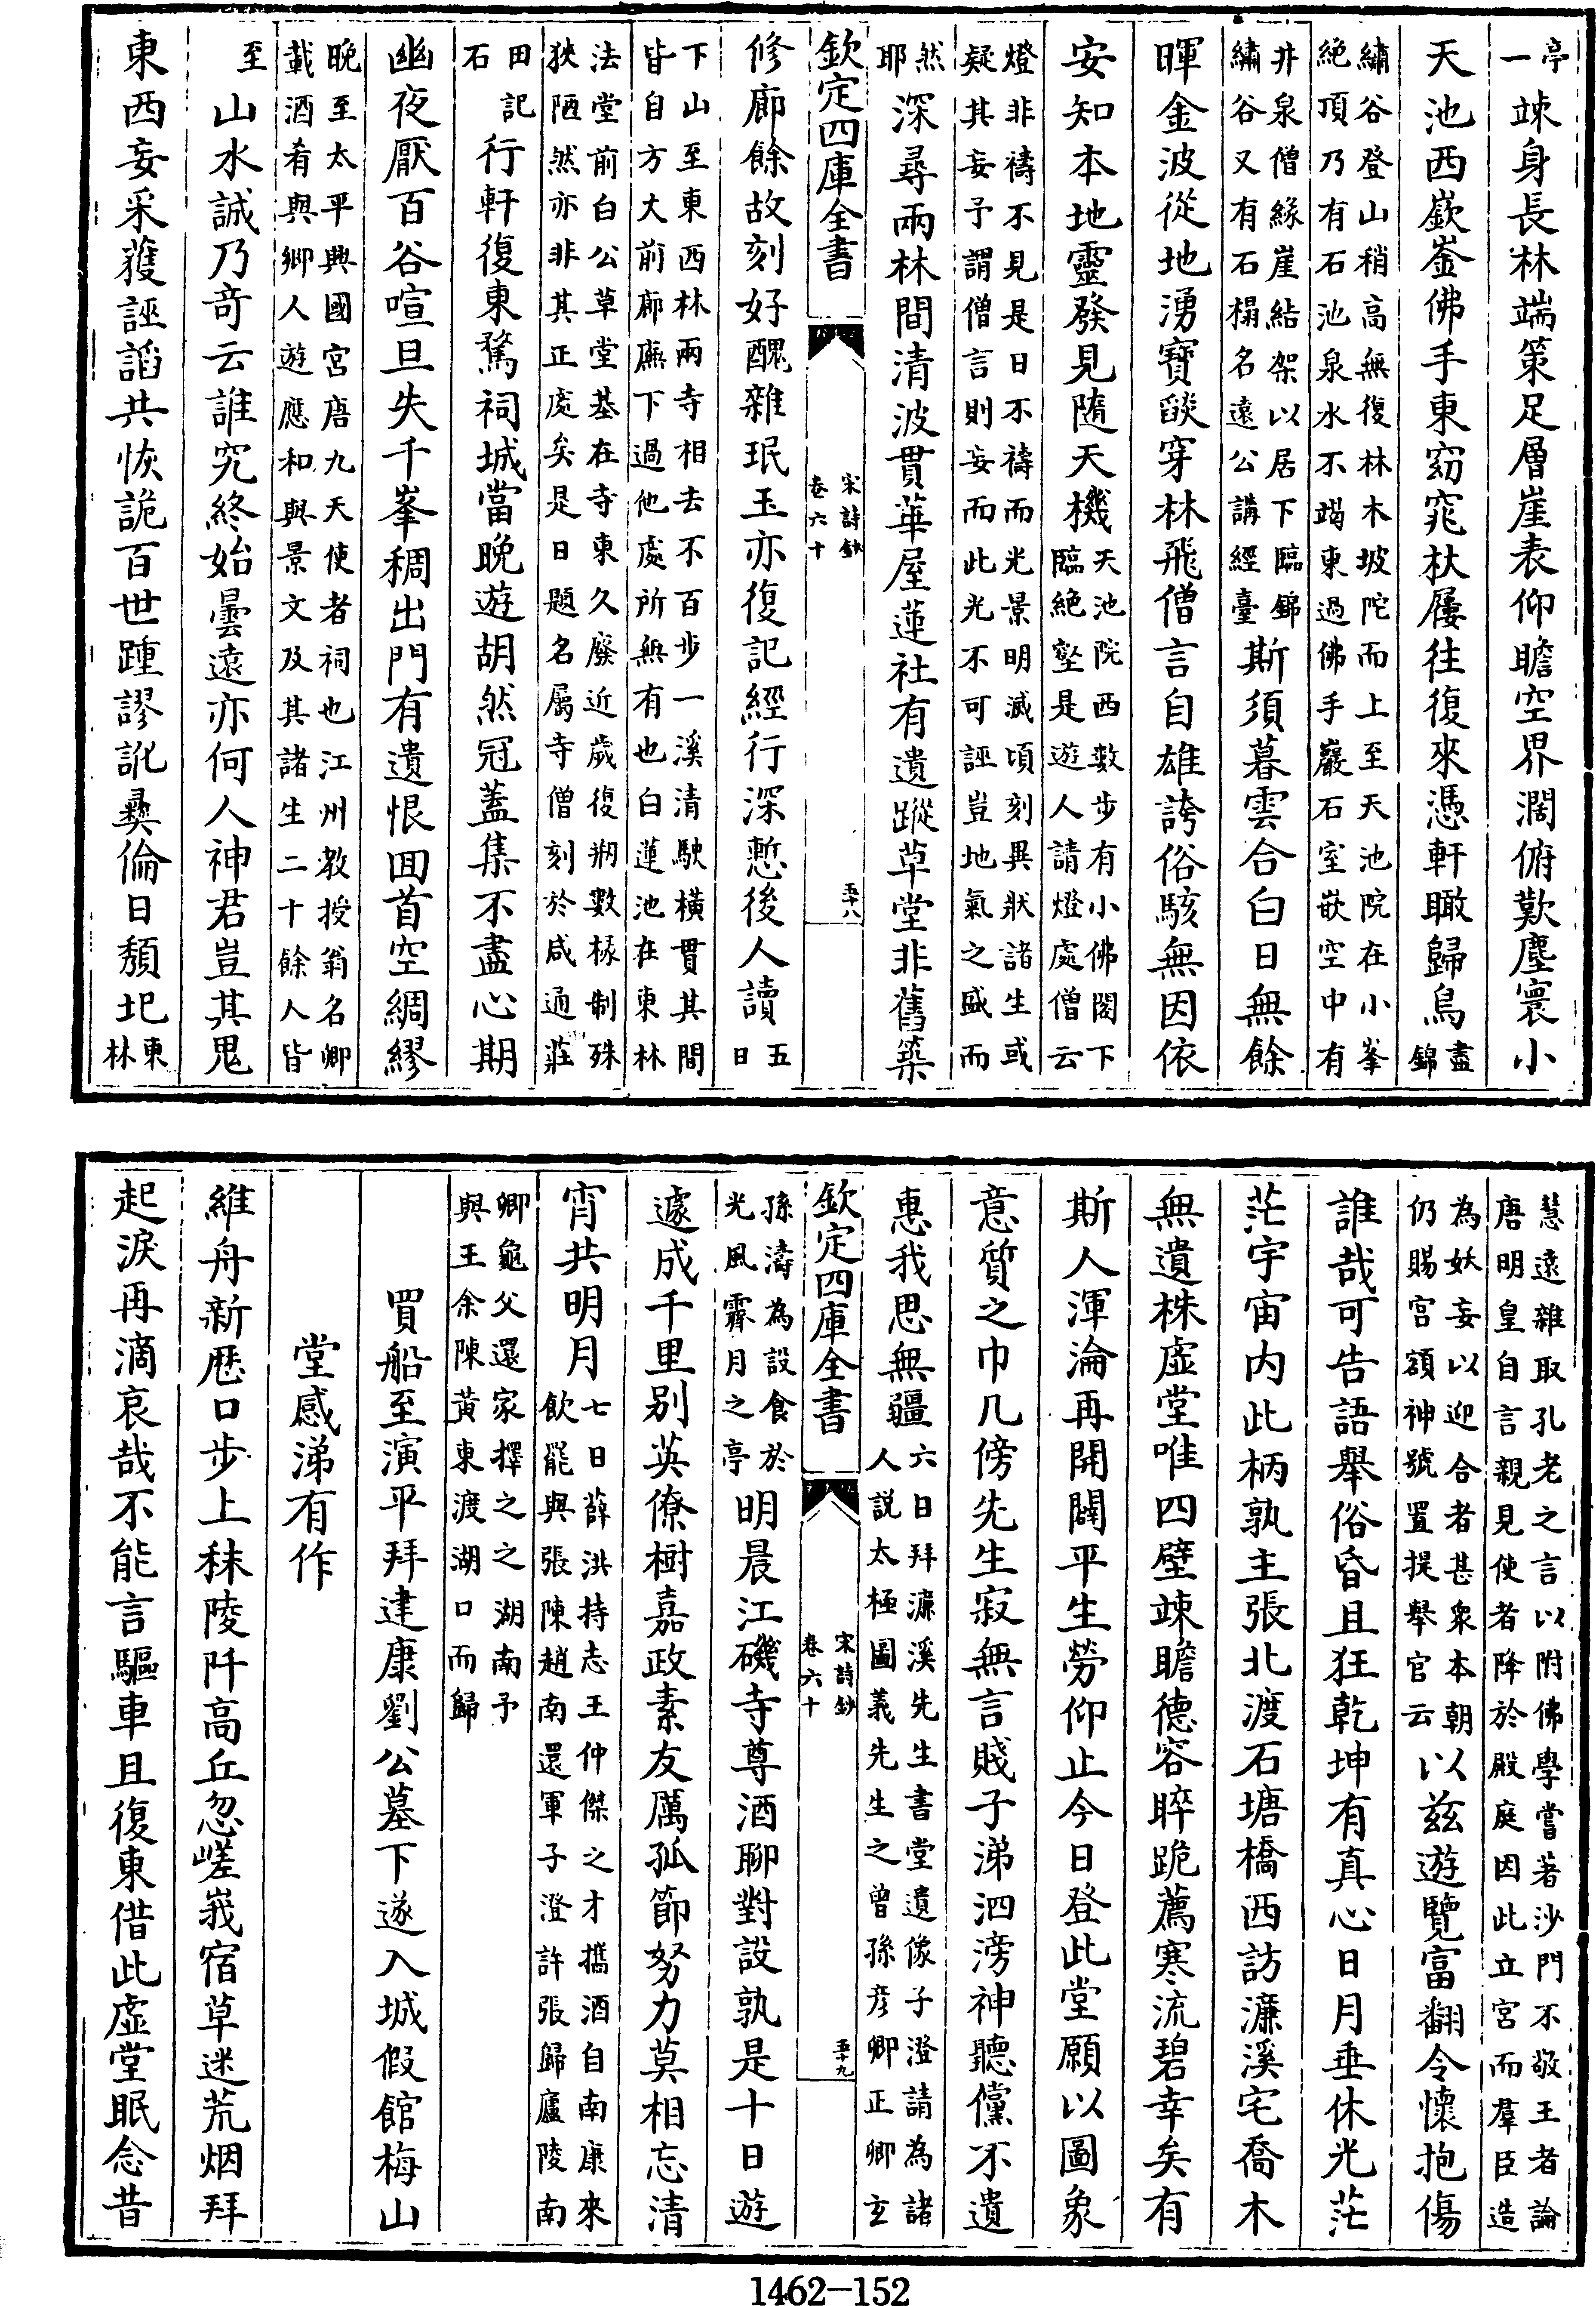 亭一竦身長林端策足層崖表仰瞻空界濶俯歎塵寰小
天池西嶔崟佛手東窈窕杖屨往復來憑軒瞰歸鳥盡錦
繡谷登山稍高無復林木坡陀而上至天池院在小峯
絶頂乃有石池泉水不竭東過佛手巖石室嵌空中有
井泉僧緣崖結架以居下臨錦
繡谷又有石榻名遠公講經臺斯須暮雲合白日無餘
暉金波從地湧寶燄穿林飛僧言自雄誇俗駭無因依
安知本地靈發見隨天機天池院西數步有小佛閣下
臨絶壑是遊人請燈處僧云
燈非禱不見是日不禱而光景明滅頃刻異狀諸生或
疑其妄予謂僧言則妄而此光不可誣豈地氣之盛而
然耶深尋兩林間清波貫華屋蓮社有遺蹤草堂非舊築
欽定四庫全書
宋詩鈔
卷六十
五十八
修廊餘故刻好醜雜珉玉亦復記經行深慙後人讀五日
下山至東西林兩寺相去不百步一溪清駛橫貫其間
皆自方大前廊廡下過他處所無有也白蓮池在東林
法堂前白公草堂基在寺東久廢近歲復剏數椽制殊
狹陋然亦非其正處矣是日題名屬寺僧刻於咸通莊
田記
石行軒復東騖祠城當晚遊胡然冠蓋集不盡心期
幽夜厭百谷喧旦失千峯稠出門有遺恨回首空綢繆
晚至太平興國宮唐九天使者祠也江州教授翁名卿
載酒肴與鄉人遊應和與景文及其諸生二十餘人皆
至山水誠乃奇云誰究終始曇遠亦何人神君豈其鬼
東西妄采蒦誣謟共恢詭百世踵謬訛彞倫日頽圮東林
慧遠雜取孔老之言以附佛學嘗著沙門不敬王者論
唐明皇自言親見使者降於殿庭因此立宮而羣臣造
為妖妄以迎合者甚衆本朝
仍賜宮額神號置提舉官云以兹遊覽富翻令懷抱傷
誰哉可告語舉俗昏且狂乾坤有真心日月垂休光茫
茫宇宙内此柄孰主張北渡石塘橋西訪濂溪宅喬木
無遺株虛堂唯四壁竦瞻德容睟跪薦寒流碧幸矣有
斯人渾淪再開闢平生勞仰止今日登此堂願以圖象
意質之巾几傍先生寂無言賤子涕泗滂神聽儻不遺
惠我思無疆六日拜濂溪先生書堂遺像子澄請為諸
人説太極圖義先生之曾孫彦卿正卿玄
欽定四庫全書
宋詩鈔
卷六十
五十九
孫濤為設食於
光風霽月之亭明晨江磯寺尊酒聊對設孰是十日遊
遽成千里别英僚樹嘉政素友厲孤節努力莫相忘清
宵共明月七日薛洪持志王仲傑之才攜酒自南康來
飲罷與張陳趙南還軍子澄許張歸廬陵南
卿龜父還家擇之之湖南予
與王余陳黃東渡湖口而歸
買船至演平拜建康劉公墓下遂入城假館梅山
堂感涕有作
維舟新厯口步上秣陵阡高丘忽嵯峩宿草迷荒烟拜
起淚再滴哀哉不能言驅車且復東借此虛堂眠念昔
1462—152